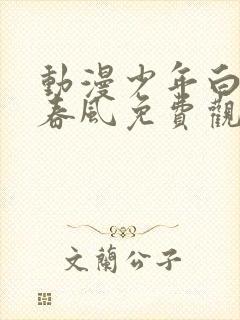 動漫少年白
春風免費觀
文蘭公子